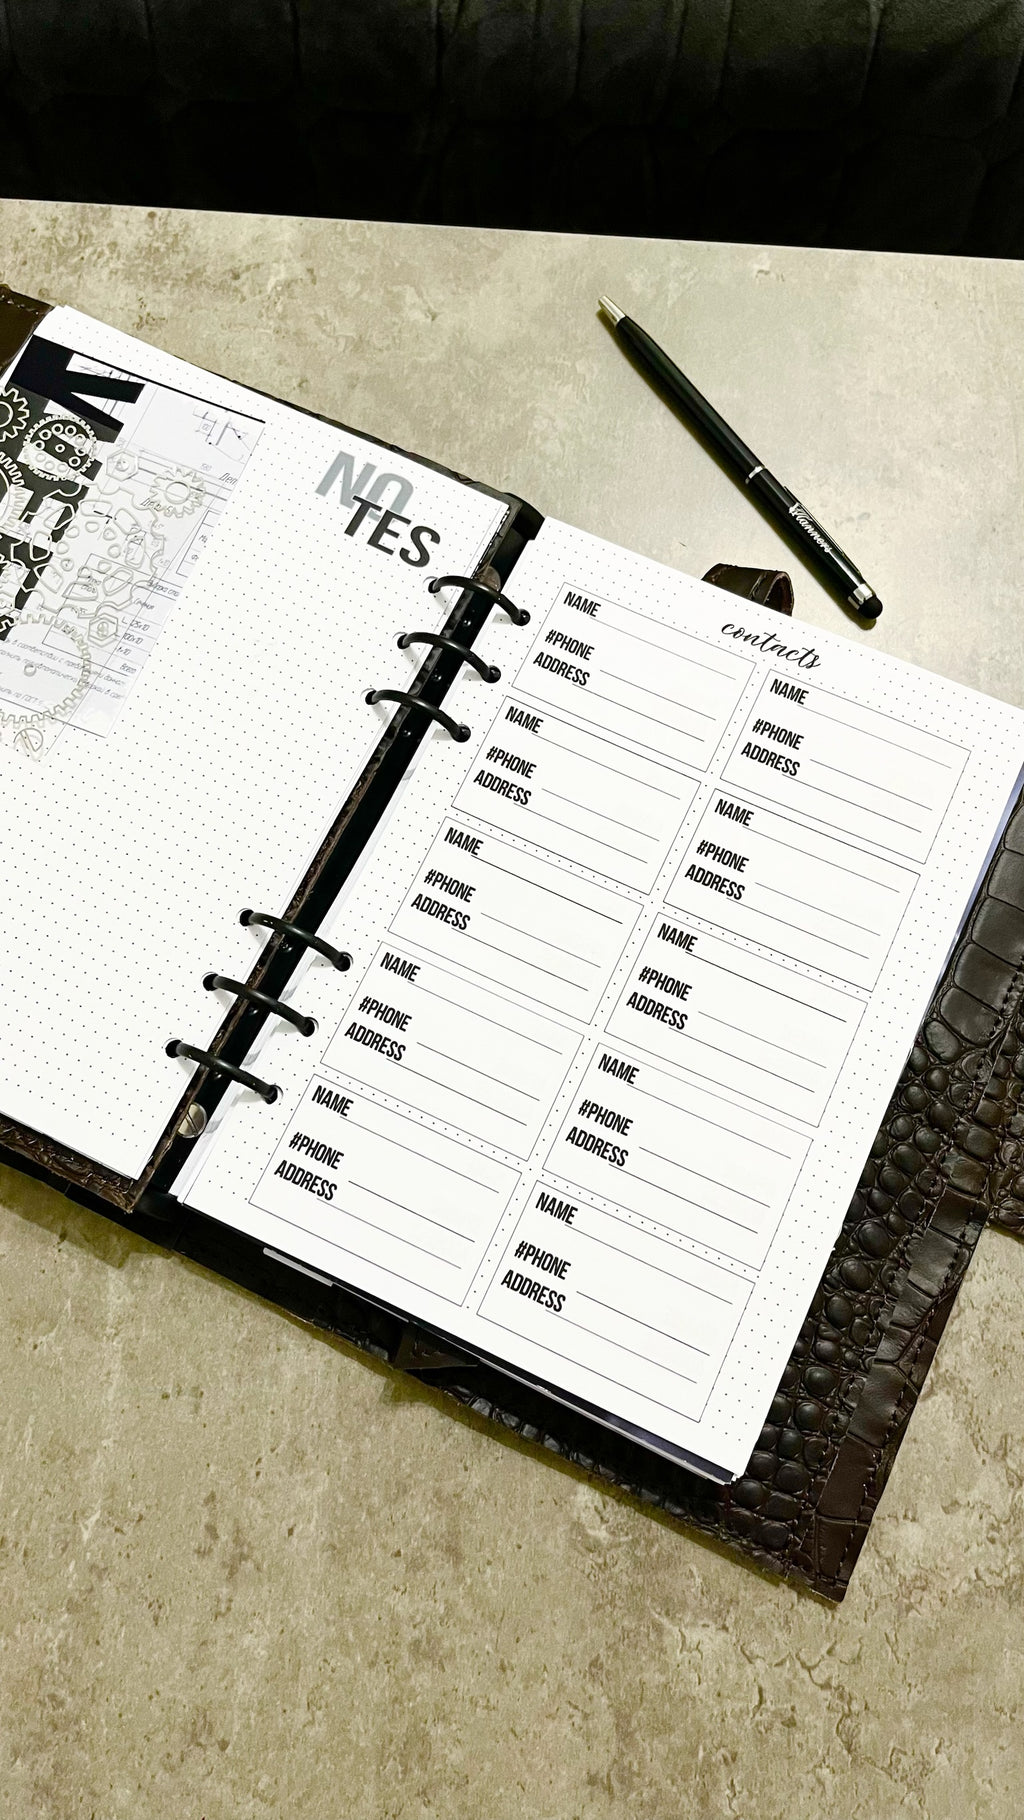 NO
TES
contacts
NAME
#PHONE
ADDRESS
NAME
#PHONE
ADDRESS
NAME
#PHONE
ADDRESS
NAME
#PHONE
ADDRESS
NAME
#PHONE
ADDRESS
NAME
#PHONE
ADDRESS
NAME
#PHONE
ADDRESS
NAME
#PHONE
ADDRESS
NAME
#PHONE
ADDRESS
NAME
#PHONE
ADDRESS
Planners